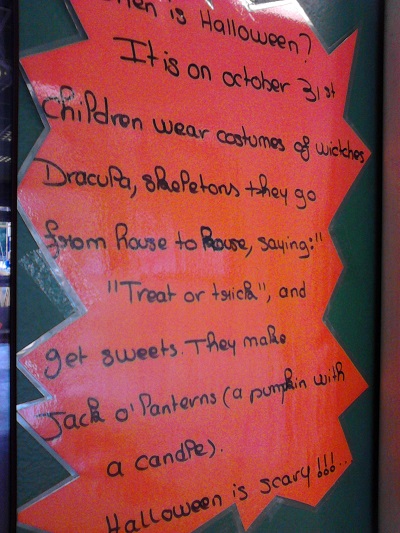 When is Halloween?
It is on october 31st
children wear costumes of wictches
Dracula, skeletons they go
from house to house, saying:"
"Treat or trick", and
get sweets. They make
Jack o'lanterns (a pumpkin with
a candle).
Halloween is scary!!!...